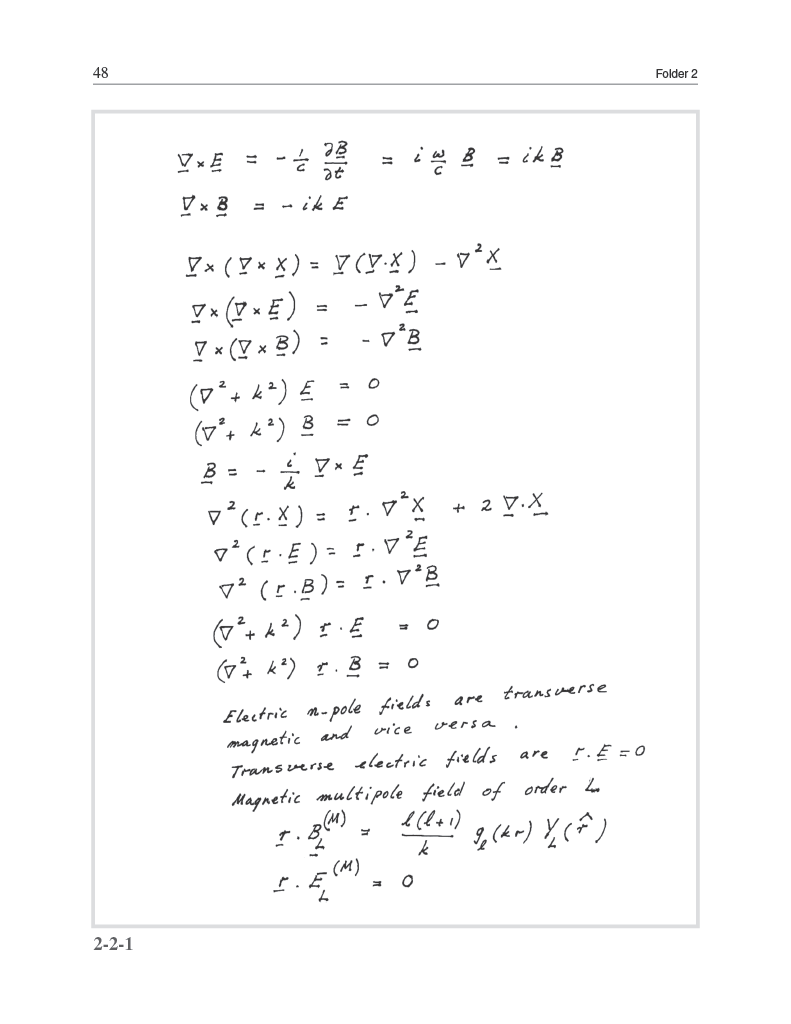 48
Folder 2
∇ × E = - 1/c ∂B/∂t = i ω/c B = ikB
∇ × B = - ik E
∇ × (∇ × X) = ∇(∇·X) - ∇²X
∇ × (∇ × E) = - ∇²E
∇ × (∇ × B) = - ∇²B
(∇² + k²) E = 0
(∇² + k²) B = 0
B = - i/k ∇ × E
∇²(r·X) = r·∇²X + 2 ∇·X
∇²(r·E) = r·∇²E
∇²(r·B) = r·∇²B
(∇² + k²) r·E = 0
(∇² + k²) r·B = 0
Electric n-pole fields are transverse
magnetic and vice versa.
Transverse electric fields are r·E = 0
Magnetic multipole field of order L
r·B_L^(M) = l(l+1)/k g_l(kr) Y_L(r̂)
r·E_L^(M) = 0
2-2-1